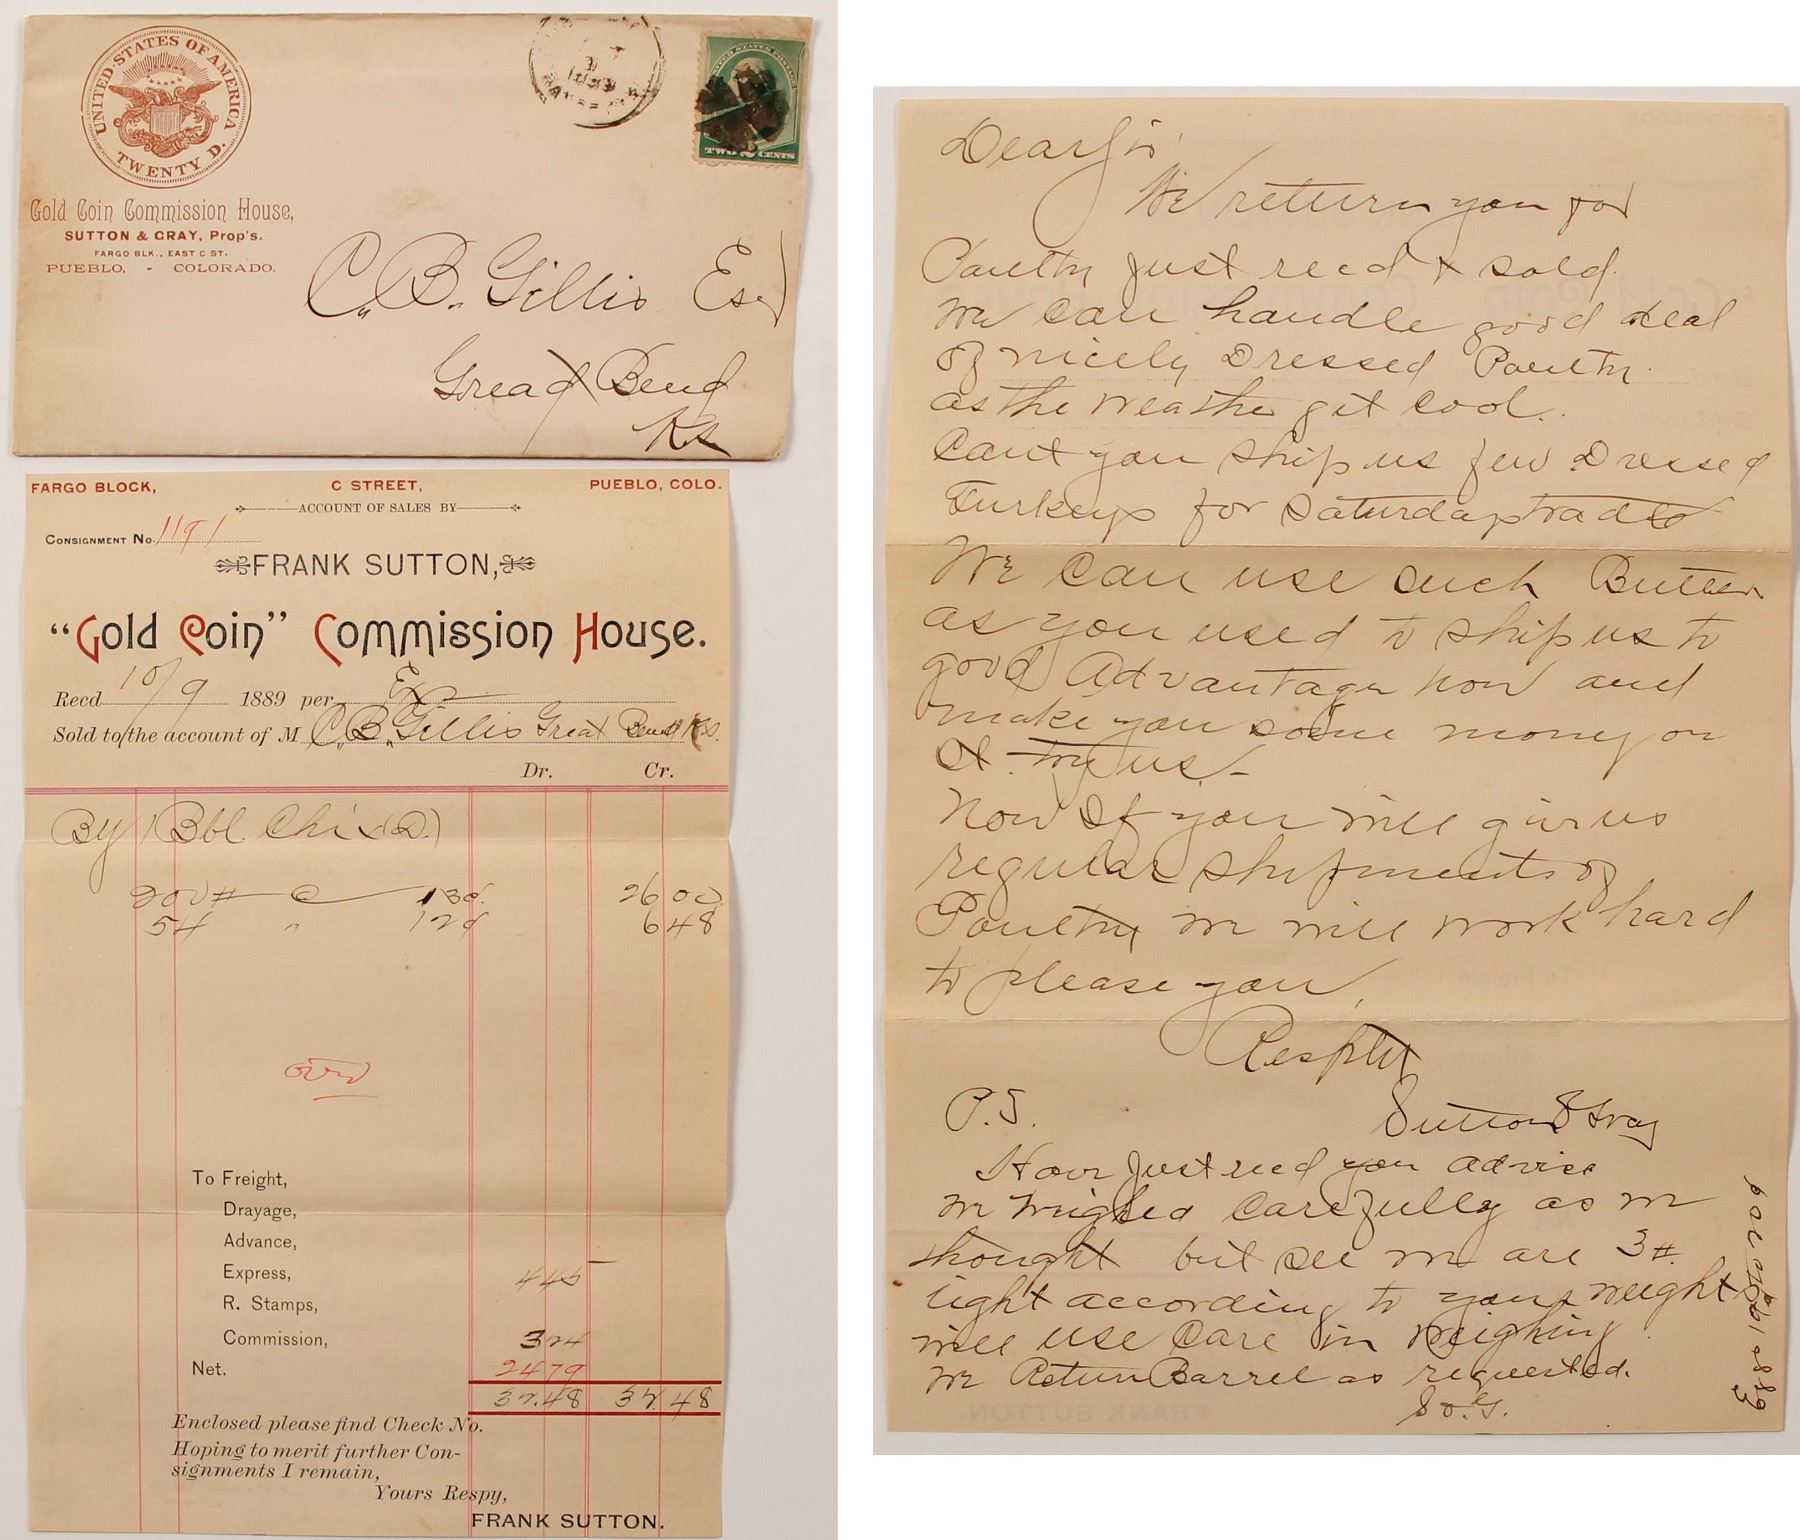 UNITED STATES OF AMERICA
TWENTY D.
Gold Coin Commission House,
SUTTON & GRAY, Prop's.
FARGO BLK., EAST C ST.
PUEBLO, - COLORADO.
UNITED STATES POSTAGE
TWO 2 CENTS
C. B. Gillis Esq
Great Bend
Ks
FARGO BLOCK, C STREET, PUEBLO, COLO.
ACCOUNT OF SALES BY
CONSIGNMENT No. 1191
FRANK SUTTON,
"Gold Coin" Commission House.
Recd 10/9 1889 per Ex
Sold to the account of M C. B. Gillis Great Bend Ks.
Dr. Cr.
By 1 Bbl. Chix (D.)
200# @ 13¢ 26 00
54 " 12¢ 6 48
over
To Freight,
Drayage,
Advance,
Express, 4 45
R. Stamps,
Commission, 3 24
Net. 24 79
32.48 32 48
Enclosed please find Check No.
Hoping to merit further Con-
signments I remain,
Yours Respy,
FRANK SUTTON.
Dear Sir
We return you for
Poultry just recd & sold.
We can handle good deal
of nicely Dressed Poultry
as the weather get cool.
Cant you ship us few Dressed
Turkeys for Saturdays trade
We can use such Butter
as you used to ship us to
good Advantage now and
make you some money on
it - try us -
Now If you will give us
regular shipments of
Poultry we will work hard
to please you,
Respfly
Sutton & Gray
P.S.
Have just recd your advise
We weighed carefully as we
thought but see we are 3#
light according to your weights
will use care in weighing
We Return Barrel as requested.
S & G.